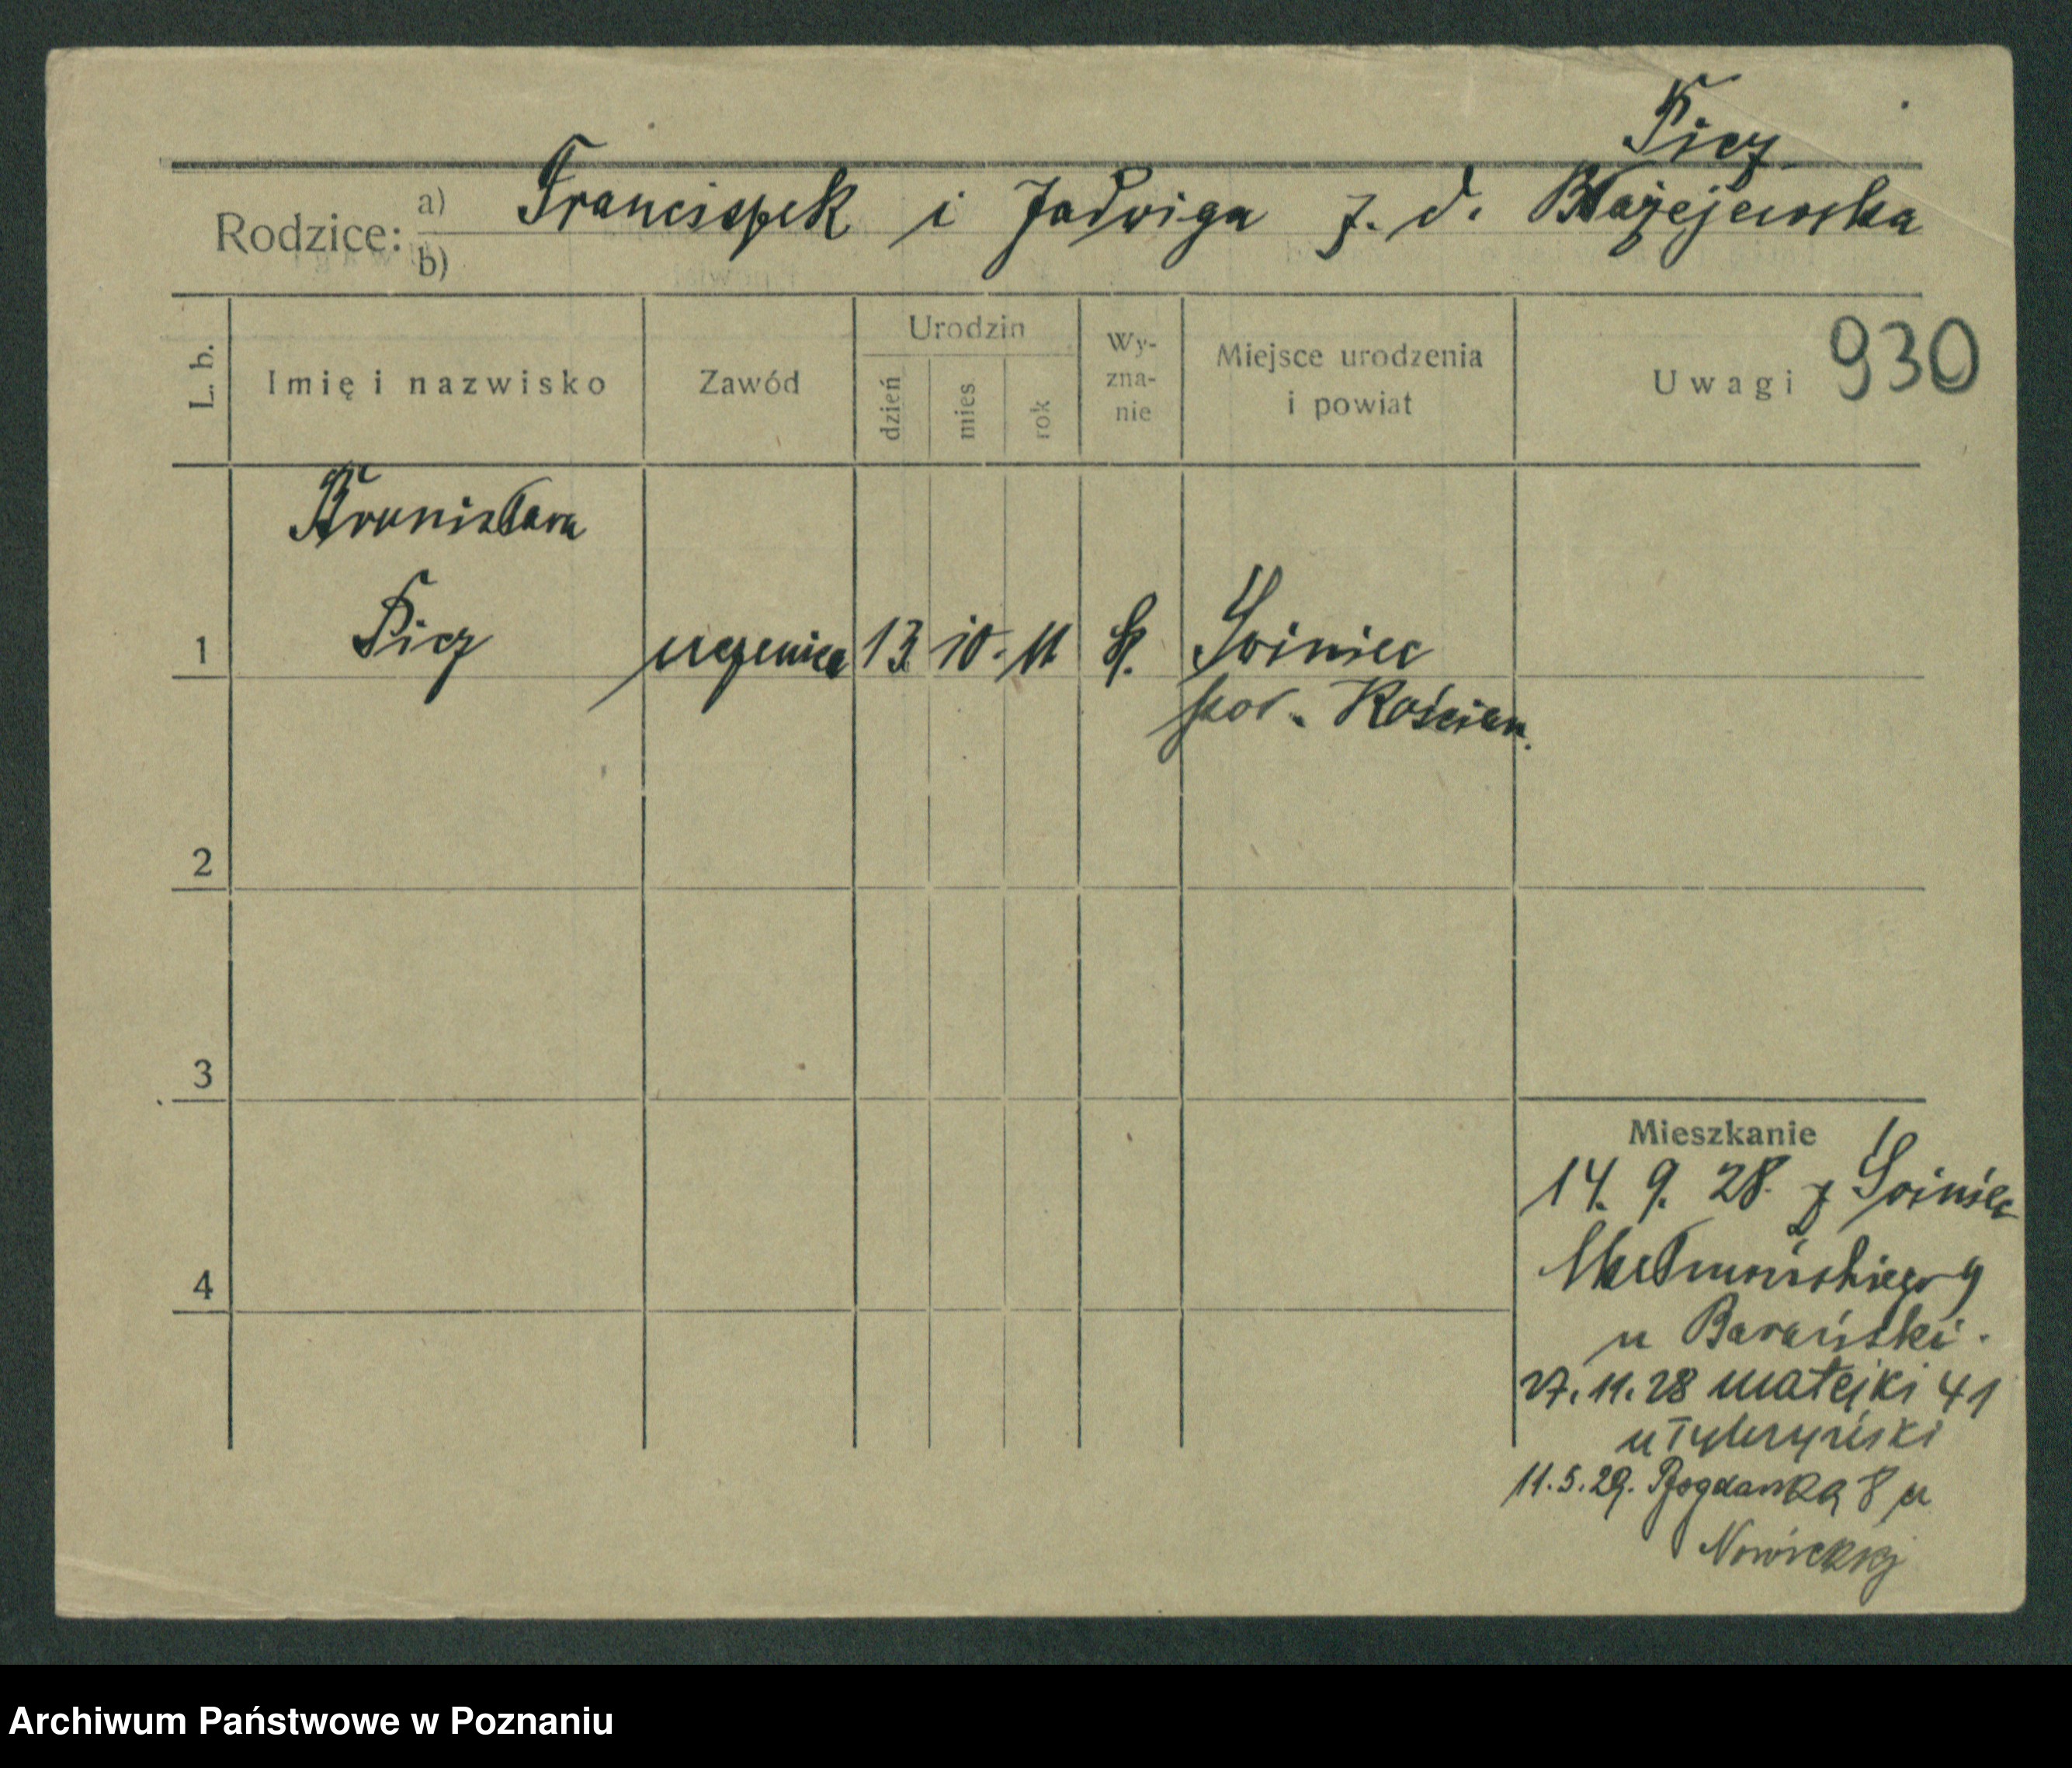 Picz
Rodzice: a) Franciszek i Jadwiga z. d. Błażejewska
b)
L. b.
Imię i nazwisko
Zawód
Urodzin
dzień
mies
rok
Wy-
zna-
nie
Miejsce urodzenia
i powiat
Uwagi
930
Bronisława
1 Picz uczenica 13 10. 11 k. Sviniec
pow. Kościan.
2
3
4
Mieszkanie
14. 9. 28. z Sviniec
9
u Barański.
27. 11. 28 Matejki 41
u
11. 5. 29. Bogdanka 8 u
Nowickiej
Archiwum Państwowe w Poznaniu